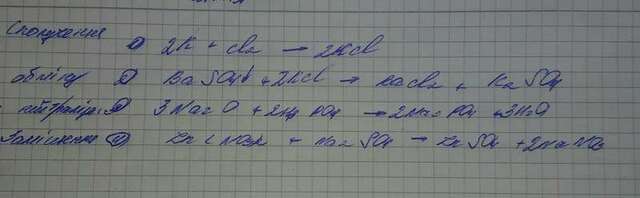 Сполучення 1) 2K + Cl₂ → 2KCl
обміну 2) BaSO₄↓ + 2KCl → BaCl₂ + K₂SO₄
3) 3Na₂O + 2H₃PO₄ → 2Na₃PO₄ + 3H₂O
4) Zn(NO₃)₂ + Na₂SO₄ → ZnSO₄ + 2NaNO₃